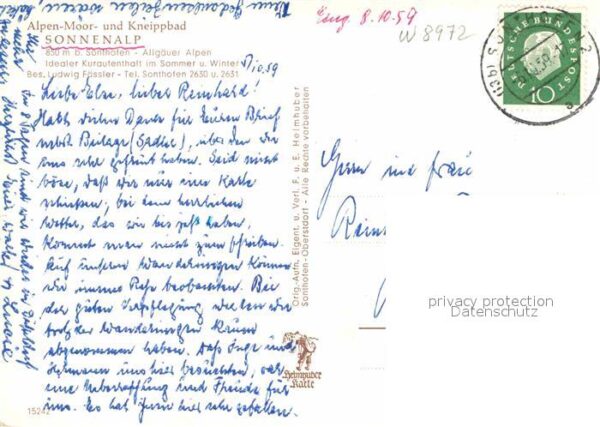 Alpen-Moor- und Kneippbad
SONNENALP
850 m b. Sonthofen - Allgäuer Alpen
Idealer Kuraufenthalt im Sommer u. Winter
Bes. Ludwig Fässler - Tel. Sonthofen 2630 u. 2631
Eing. 8.10.59
W 8972
10.59
Liebe Else, lieber Reinhard!
Habt vielen Dank für Euren Brief
nebst Beilage über den wir
uns sehr gefreut haben. Seid nicht
böse, daß wir nur eine Karte
schicken, bei dem herrlichen
Wetter, das wir bis jetzt haben,
kommt man nicht zum Schreiben.
Auf unseren Wanderungen können
wir immer Rehe beobachten. Bei
der guten Verpflegung werden wir
trotz der Wanderungen kaum
abgenommen haben. Daß Inge und
Hermann uns hier besuchten, war
eine Ueberraschung und Freude für
uns. Es hat ihnen hier sehr gefallen.
In 8 Tagen sind wir wieder in Düsseldorf
Herzlichst Eure Walter u.
Orig.-Aufn. Eigent. u. Verl. F. u. E. Heimhuber
Sonthofen-Oberstdorf - Alle Rechte vorbehalten
Heimhuber
Karte
15242
DEUTSCHE BUNDESPOST
10
Herrn und Frau
privacy protection
Datenschutz